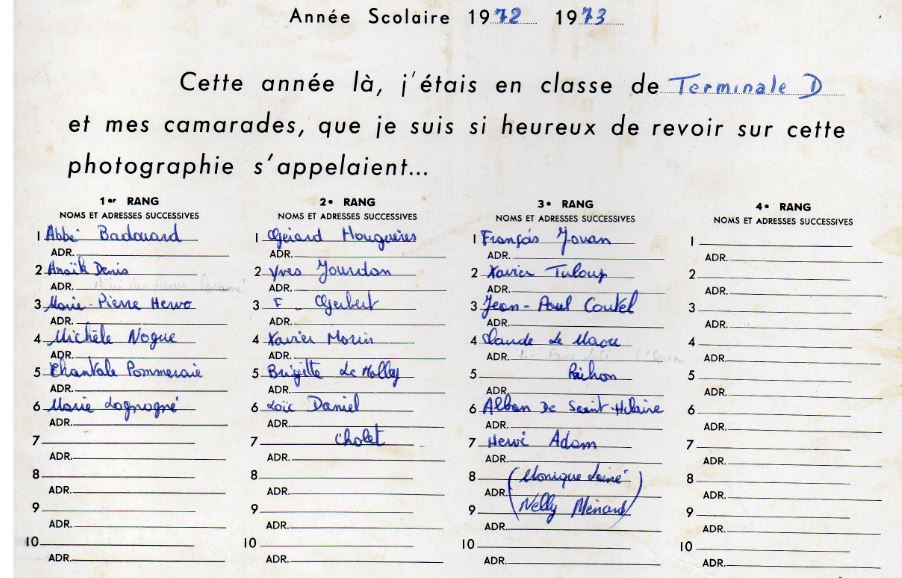 Année Scolaire 1972 1973
Cette année là, j'étais en classe de Terminale D
et mes camarades, que je suis si heureux de revoir sur cette
photographie s'appelaient...
1er RANG
NOMS ET ADRESSES SUCCESSIVES
1 Abbé Badouard
ADR.
2 Anaïk Denis
ADR.
3 Marie-Pierre Hervo
ADR.
4 Michèle Nogue
ADR.
5 Chantale Pommeraie
ADR.
6 Marie Lagnogné
ADR.
7
ADR.
8
ADR.
9
ADR.
10
ADR.
2e RANG
NOMS ET ADRESSES SUCCESSIVES
1 Gérard Mouguères
ADR.
2 Yves Jourdan
ADR.
3 F Gerbert
ADR.
4 Xavier Morin
ADR.
5 Brigitte Le Molley
ADR.
6 Loïc Daniel
ADR.
7 Cholet
ADR.
8
ADR.
9
ADR.
10
ADR.
3e RANG
NOMS ET ADRESSES SUCCESSIVES
1 François Jouan
ADR.
2 Xavier Tuloup
ADR.
3 Jean-Paul Coutel
ADR.
4 Claude Le Maou
ADR.
5 Pichon
ADR.
6 Alban De Saint-Hilaire
ADR.
7 Hervé Adam
ADR.
8 (Monique Lainé
ADR.
9 Nelly Ménard)
ADR.
10
ADR.
4e RANG
NOMS ET ADRESSES SUCCESSIVES
1
ADR.
2
ADR.
3
ADR.
4
ADR.
5
ADR.
6
ADR.
7
ADR.
8
ADR.
9
ADR.
10
ADR.